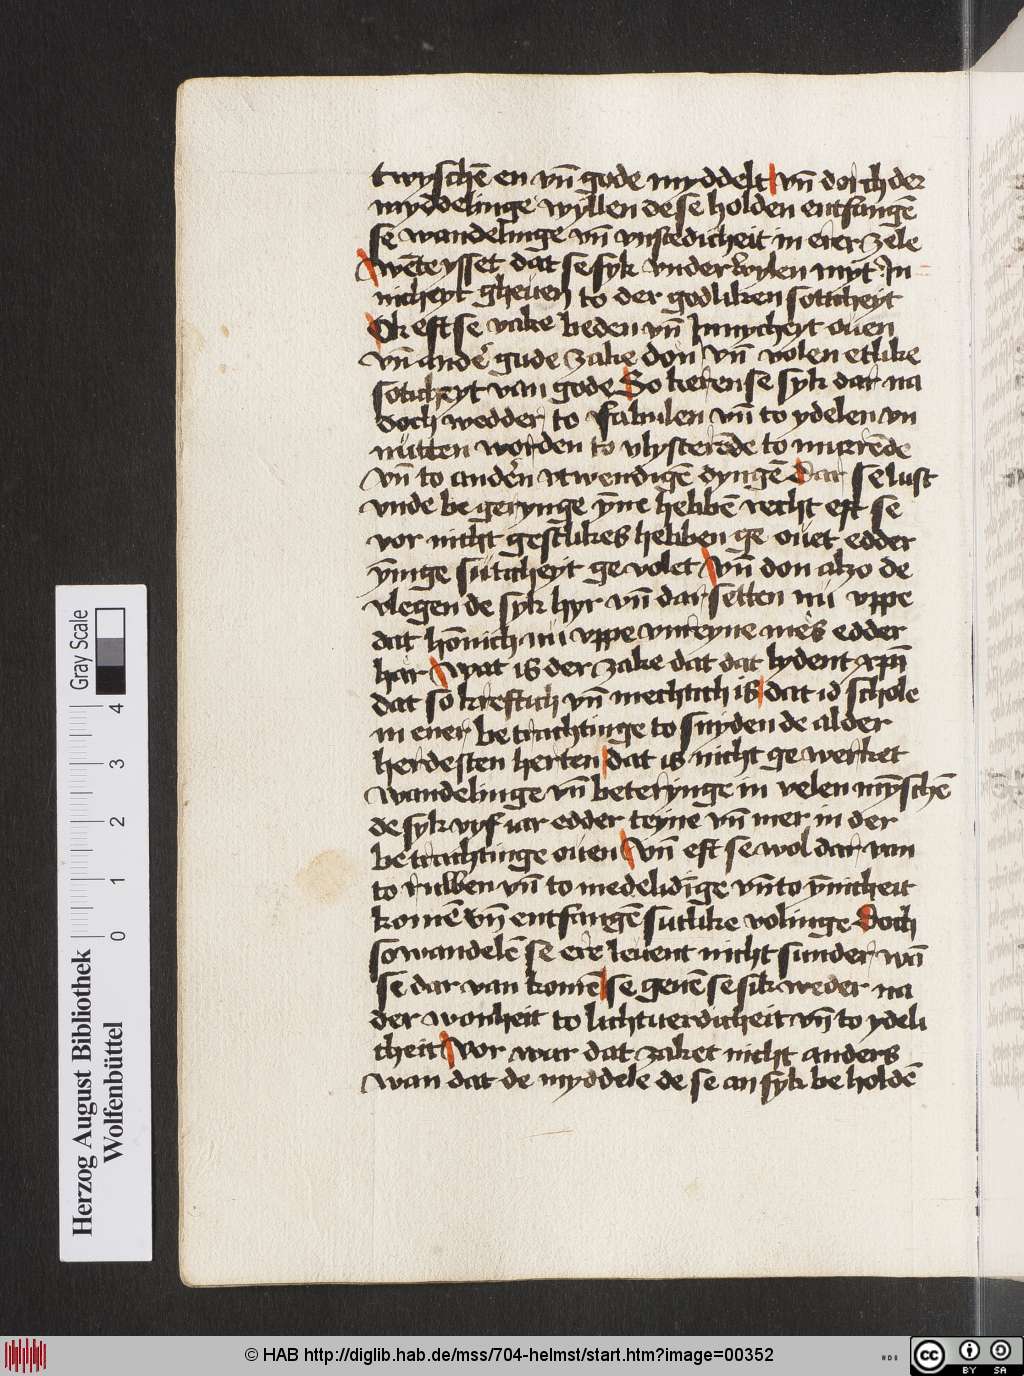 twyschē en vn̄ gode myddelt vn̄ dorch der
myddelinge wyllen de se holden entfangē
se wandelinge vn̄ vnstedicheit in erer zele
wēte ysset dat se syk vnderwylen myt In
nicheyt gheuen to der godliken soticheyt
Ok eft se vake beden vn̄ Innycheyt ouen
vn̄ander gude zake don vn̄ volen etlike
soticheyt van gode So keren se syk dar na
doch wedder to fabulen vn̄ to ydelen vn
nutten worden to vlysterēde to murrēde
vn̄ to andern vtwendigē dyngē Dar se lust
vnde begerynge ȳne hebbē recht eft se
vor nicht gestlikes hebben ge ouet edder
ȳnige suticheyt ge volet vn̄ don alzo de
vlegen de syk hyr vn̄ dar setten nu vppe
dat hōnich nu vppe vnreyne mes edder
har Wat is der zake dat dat lydent xp̄i
dat so kreftich vn̄ mechtich is dat id schole
in ener betrachtinge to snyden de alder
herdesten herten dat is nicht ge werket
wandelinge vn̄ beterynge in velen mȳschē
de syk vyf iar edder teyne vn̄ mer in der
betrachtinge ouen Vn̄ eft se wol dar van
to ruwen vn̄ to medelidige vn̄ to ȳnicheit
komē vn̄ entfangē sutlike volinge Doch
so wandelē se ere leuent nicht sunder wā
se dar van komē se geuē se sik weder na
der wonheit to lichtuerdicheit vn̄ to ydeli
cheit Vor war dat zaket nicht anders
wan dat de myddele de se an syk be holdē
Herzog August Bibliothek
Wolfenbüttel
Gray Scale
0 1 2 3 4
© HAB http://diglib.hab.de/mss/704-helmst/start.htm?image=00352
HAB
cc BY SA